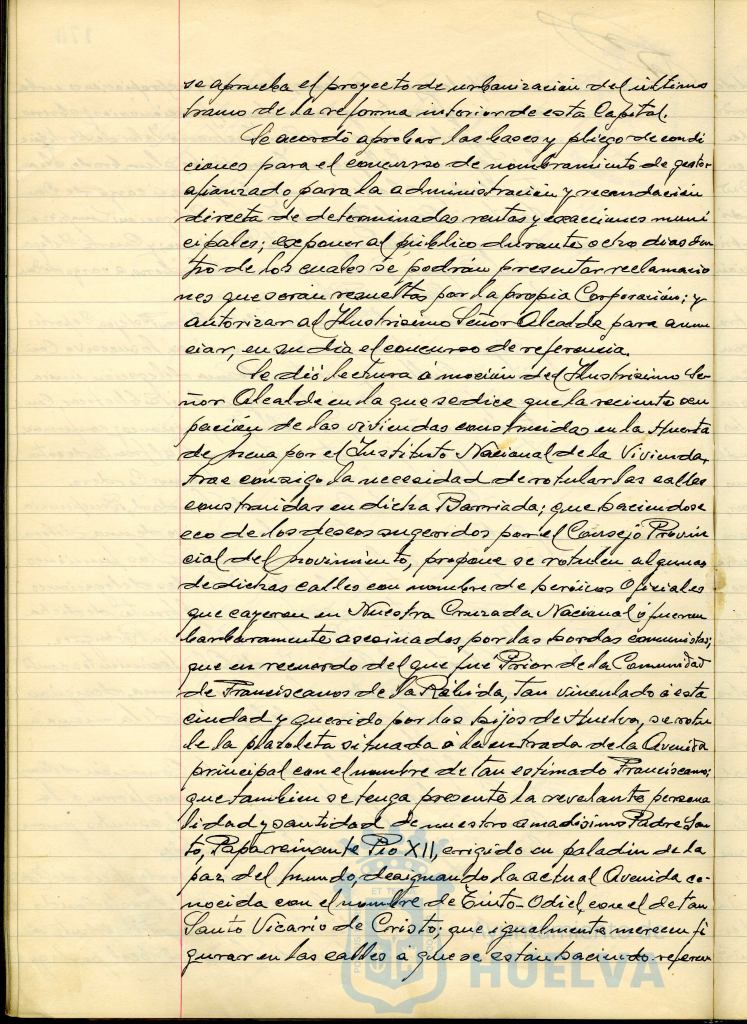 se aprueba el proyecto de urbanización del último
tramo de la reforma interior de esta Capital.
Se acordó aprobar las bases y pliego de condi
ciones para el concurso de nombramiento de gestor
afianzado para la administración y recaudación
directa de determinadas rentas y exacciones muni
cipales; exponer al público durante ocho dias den
tro de los cuales se podrán presentar reclamacio
nes que serán resueltas por la propia Corporación; y
autorizar al Ilustrisimo Señor Alcalde para anun
ciar, en su dia el concurso de referencia.
Se dió lectura á moción del Ilustrisimo Se
ñor Alcalde en la que se dice que la reciente ocu
pación de las viviendas construidas en la Huerta
de Mena por el Instituto Nacional de la Vivienda,
trae consigo la necesidad de rotular las calles
construidas en dicha Barriada; que haciendose
eco de los deseos sugeridos por el Consejo Provin
cial del Movimiento, propone se rotulen algunas
de dichas calles con nombre de heróicos Oficiales
que cayeron en Nuestra Cruzada Nacional ó fueron
barbaramente asesinados por las hordas comunistas;
que en recuerdo del que fué Prior de la Comunidad
de Franciscanos de la Rábida, tan vinculado á esta
ciudad y querido por los hijos de Huelva, se rotu
le la plazoleta situada á la entrada de la Avenida
principal con el nombre de tan estimado Franciscano;
que tambien se tenga presente la revelante persona
lidad y santidad de nuestro amadisimo Padre San
to, Papa reinante Pio XII, erigido en paladin de la
paz del Mundo, designando la actual Avenida co-
nocida con el nombre de Tinto-Odiel, con el de tan
Santo Vicario de Cristo; que igualmente merecen fi
gurar en las calles á que se están haciendo referen
Ayuntamiento de
HUELVA